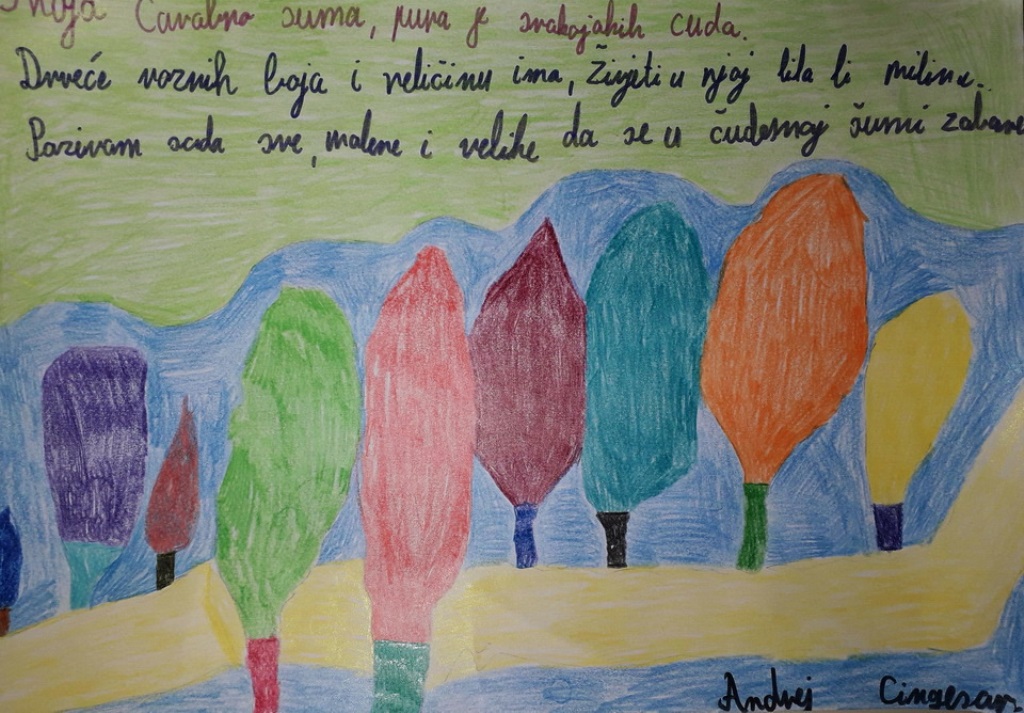 Moja Čarobna šuma, puna je svakojakih čuda.
Drveće raznih boja i veličinu ima, Živjeti u njoj bila bi milina.
Pozivam sada sve, malene i velike da se u čudesnoj šumi zabave
Andrej Cingesar